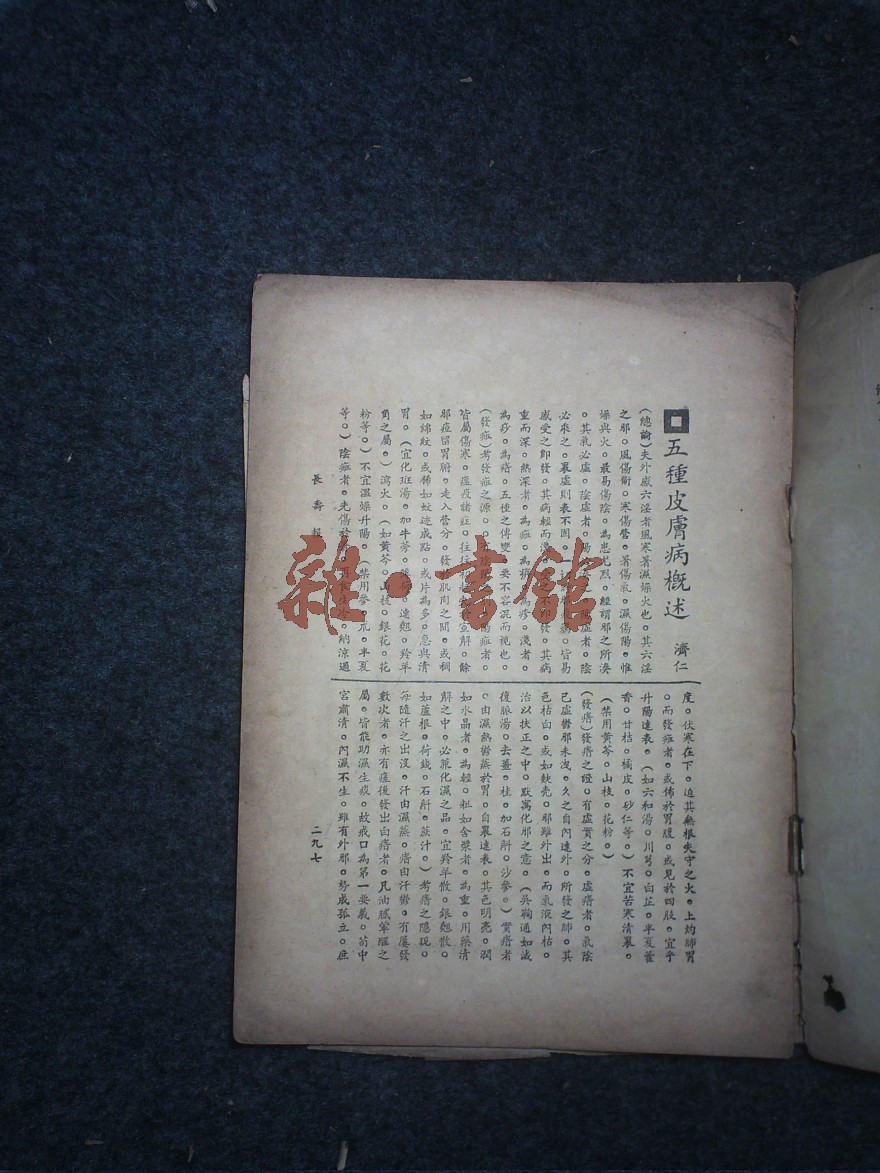 五種皮膚病概述
濟仁
(總論)夫外感六淫者風寒暑濕燥火也。其六淫
之邪。風傷衛。寒傷營。暑傷氣。濕傷陽。惟
燥與火。最易傷陰。為患尤烈。經謂邪之所湊
。其氣必虛。陰虛者。陽 陰
必來之。裏虛則表不固。 皆易
感受之即發。其病輕而淺 不即發。其病
重而深。熱深者。為痧。為 為疹。淺者。
為痧。為瘄。五種之傳變。要不容混而視也。
(發痧)考發痧之源。 陽痧者。
皆屬傷寒。瘟疫諸症。往往 宣解。餘
邪痧留胃腑。走入營分。發 肌肉之間。或稠
如綿紋。或稀如蚊迹成點。或片為多。急與清
胃。(宜化斑湯。加牛蒡。 連翹。羚羊
角之屬。)瀉火。(如黃芩。山梔。銀花。花
粉等。)不宜溫燥升陽。(禁用參。朮。半夏
等。)陰痧者。先傷於 納涼過
度。伏寒在下。迫其無根失守之火。上灼肺胃
。而發痧者。或佈於胃腹。或見於四肢。宜乎
升陽達表。(如六和湯。川芎。白芷。半夏藿
香。甘桔。橘皮。砂仁等。)不宜苦寒清裏。
(禁用黃芩。山梔。花粉。)
(發瘄)發瘄之證。有虛實之分。虛瘄者。氣陰
已虛鬱邪未洩。久之自內達外。所發之肺。其
色枯白。或如麩壳。邪雖外出。而氣液內枯。
治以扶正之中。默寓化邪之意。(吳鞠通加減
復脈湯。去薑。桂。加石斛。沙參。)實瘄者
。由濕熱鬱蒸於胃。自裏達表。其色明亮。潤
如水晶者。為輕。粗如含漿者。為重。用藥清
解之中。必兼化濕之品。宜羚羊散。銀翹散。
如蘆根。荷錢。石斛。蔗汁。)考瘄之隱現。
每隨汗之出沒。汗由濕蒸。瘄由汗鬱。有屢發
數次者。亦有痧後發出白瘄者。凡油膩葷腥之
屬。皆能助濕生痰。故戒口為第一要義。苟中
宮肅清。內濕不生。雖有外邪。勢成孤立。庶
長壽報
二九七
雜·書館